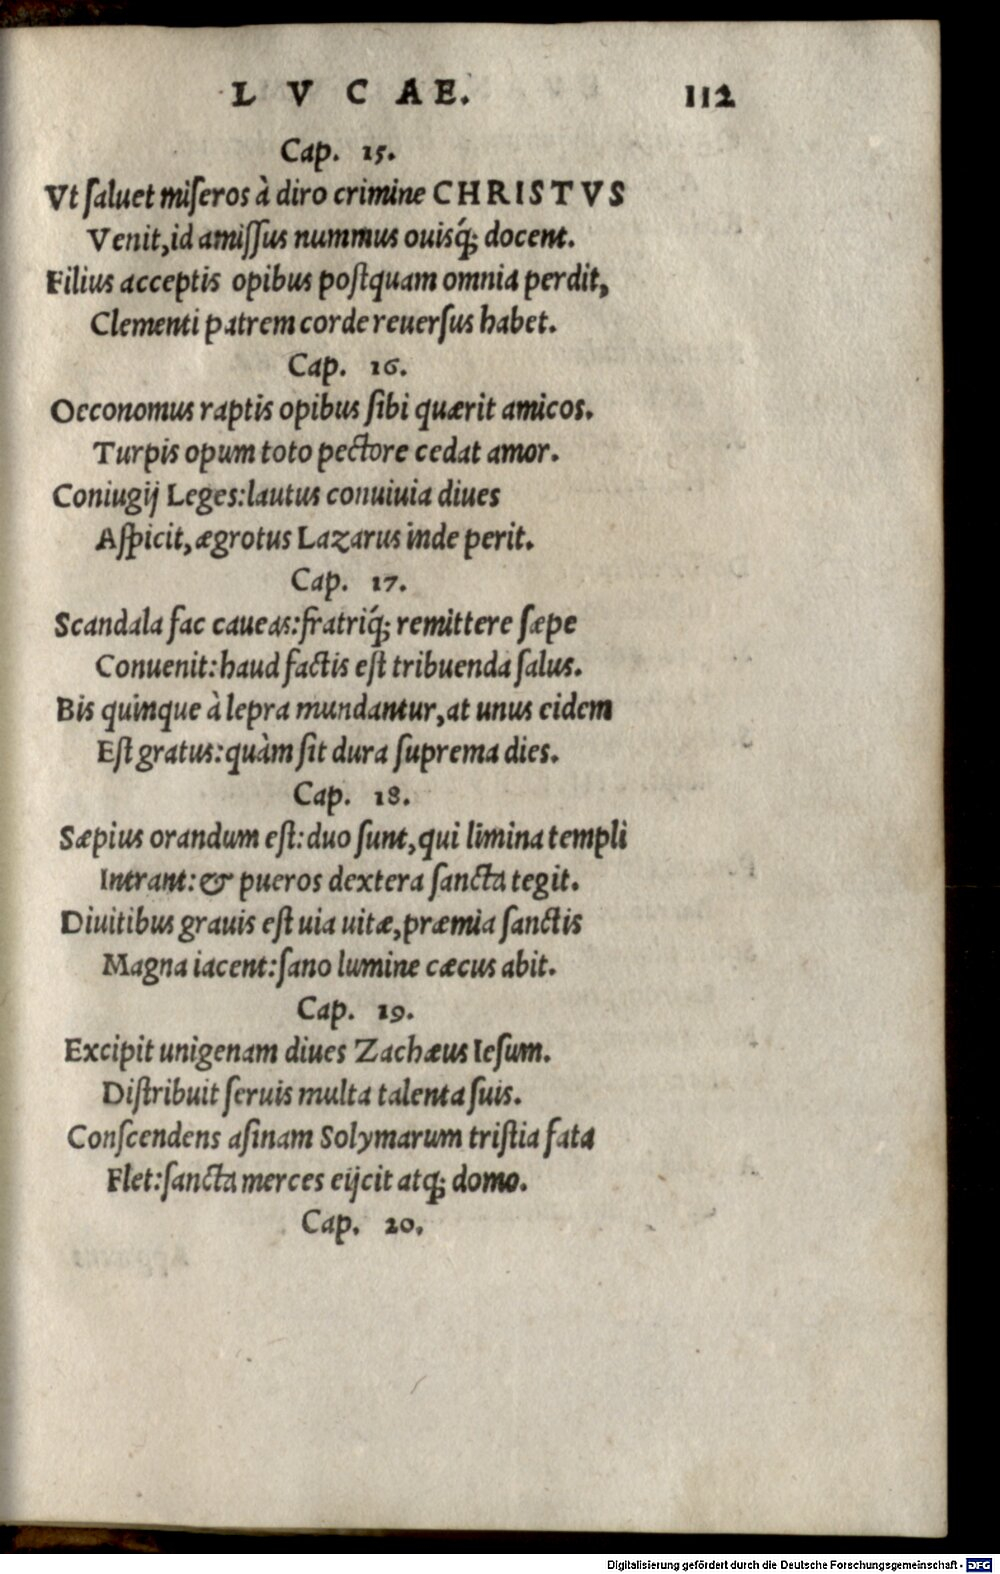 L V C AE. 112
Cap. 15.
Vt ſaluet miſeros à diro crimine CHRISTVS
Venit, id amiſſus nummus ouisq́; docent.
Filius acceptis opibus poſtquam omnia perdit,
Clementi patrem corde reuerſus habet.
Cap. 16.
Oeconomus raptis opibus ſibi quærit amicos.
Turpis opum toto pectore cedat amor.
Coniugij Leges: lautus conuiuia diues
Aſpicit, ægrotus Lazarus inde perit.
Cap. 17.
Scandala fac caueas: fratriq́; remittere ſæpe
Conuenit: haud factis eſt tribuenda ſalus.
Bis quinque à lepra mundantur, at unus eidem
Eſt gratus: quàm ſit dura ſuprema dies.
Cap. 18.
Sæpius orandum eſt: duo ſunt, qui limina templi
Intrant: & pueros dextera ſancta tegit.
Diuitibus grauis eſt uia uitæ, præmia ſanctis
Magna iacent: ſano lumine cæcus abit.
Cap. 19.
Excipit unigenam diues Zachæus Ieſum.
Diſtribuit ſeruis multa talenta ſuis.
Conſcendens aſinam Solymarum triſtia fata
Flet: ſancta merces eijcit atq; domo.
Cap. 20.
Digitalisierung gefördert durch die Deutsche Forschungsgemeinschaft - DFG